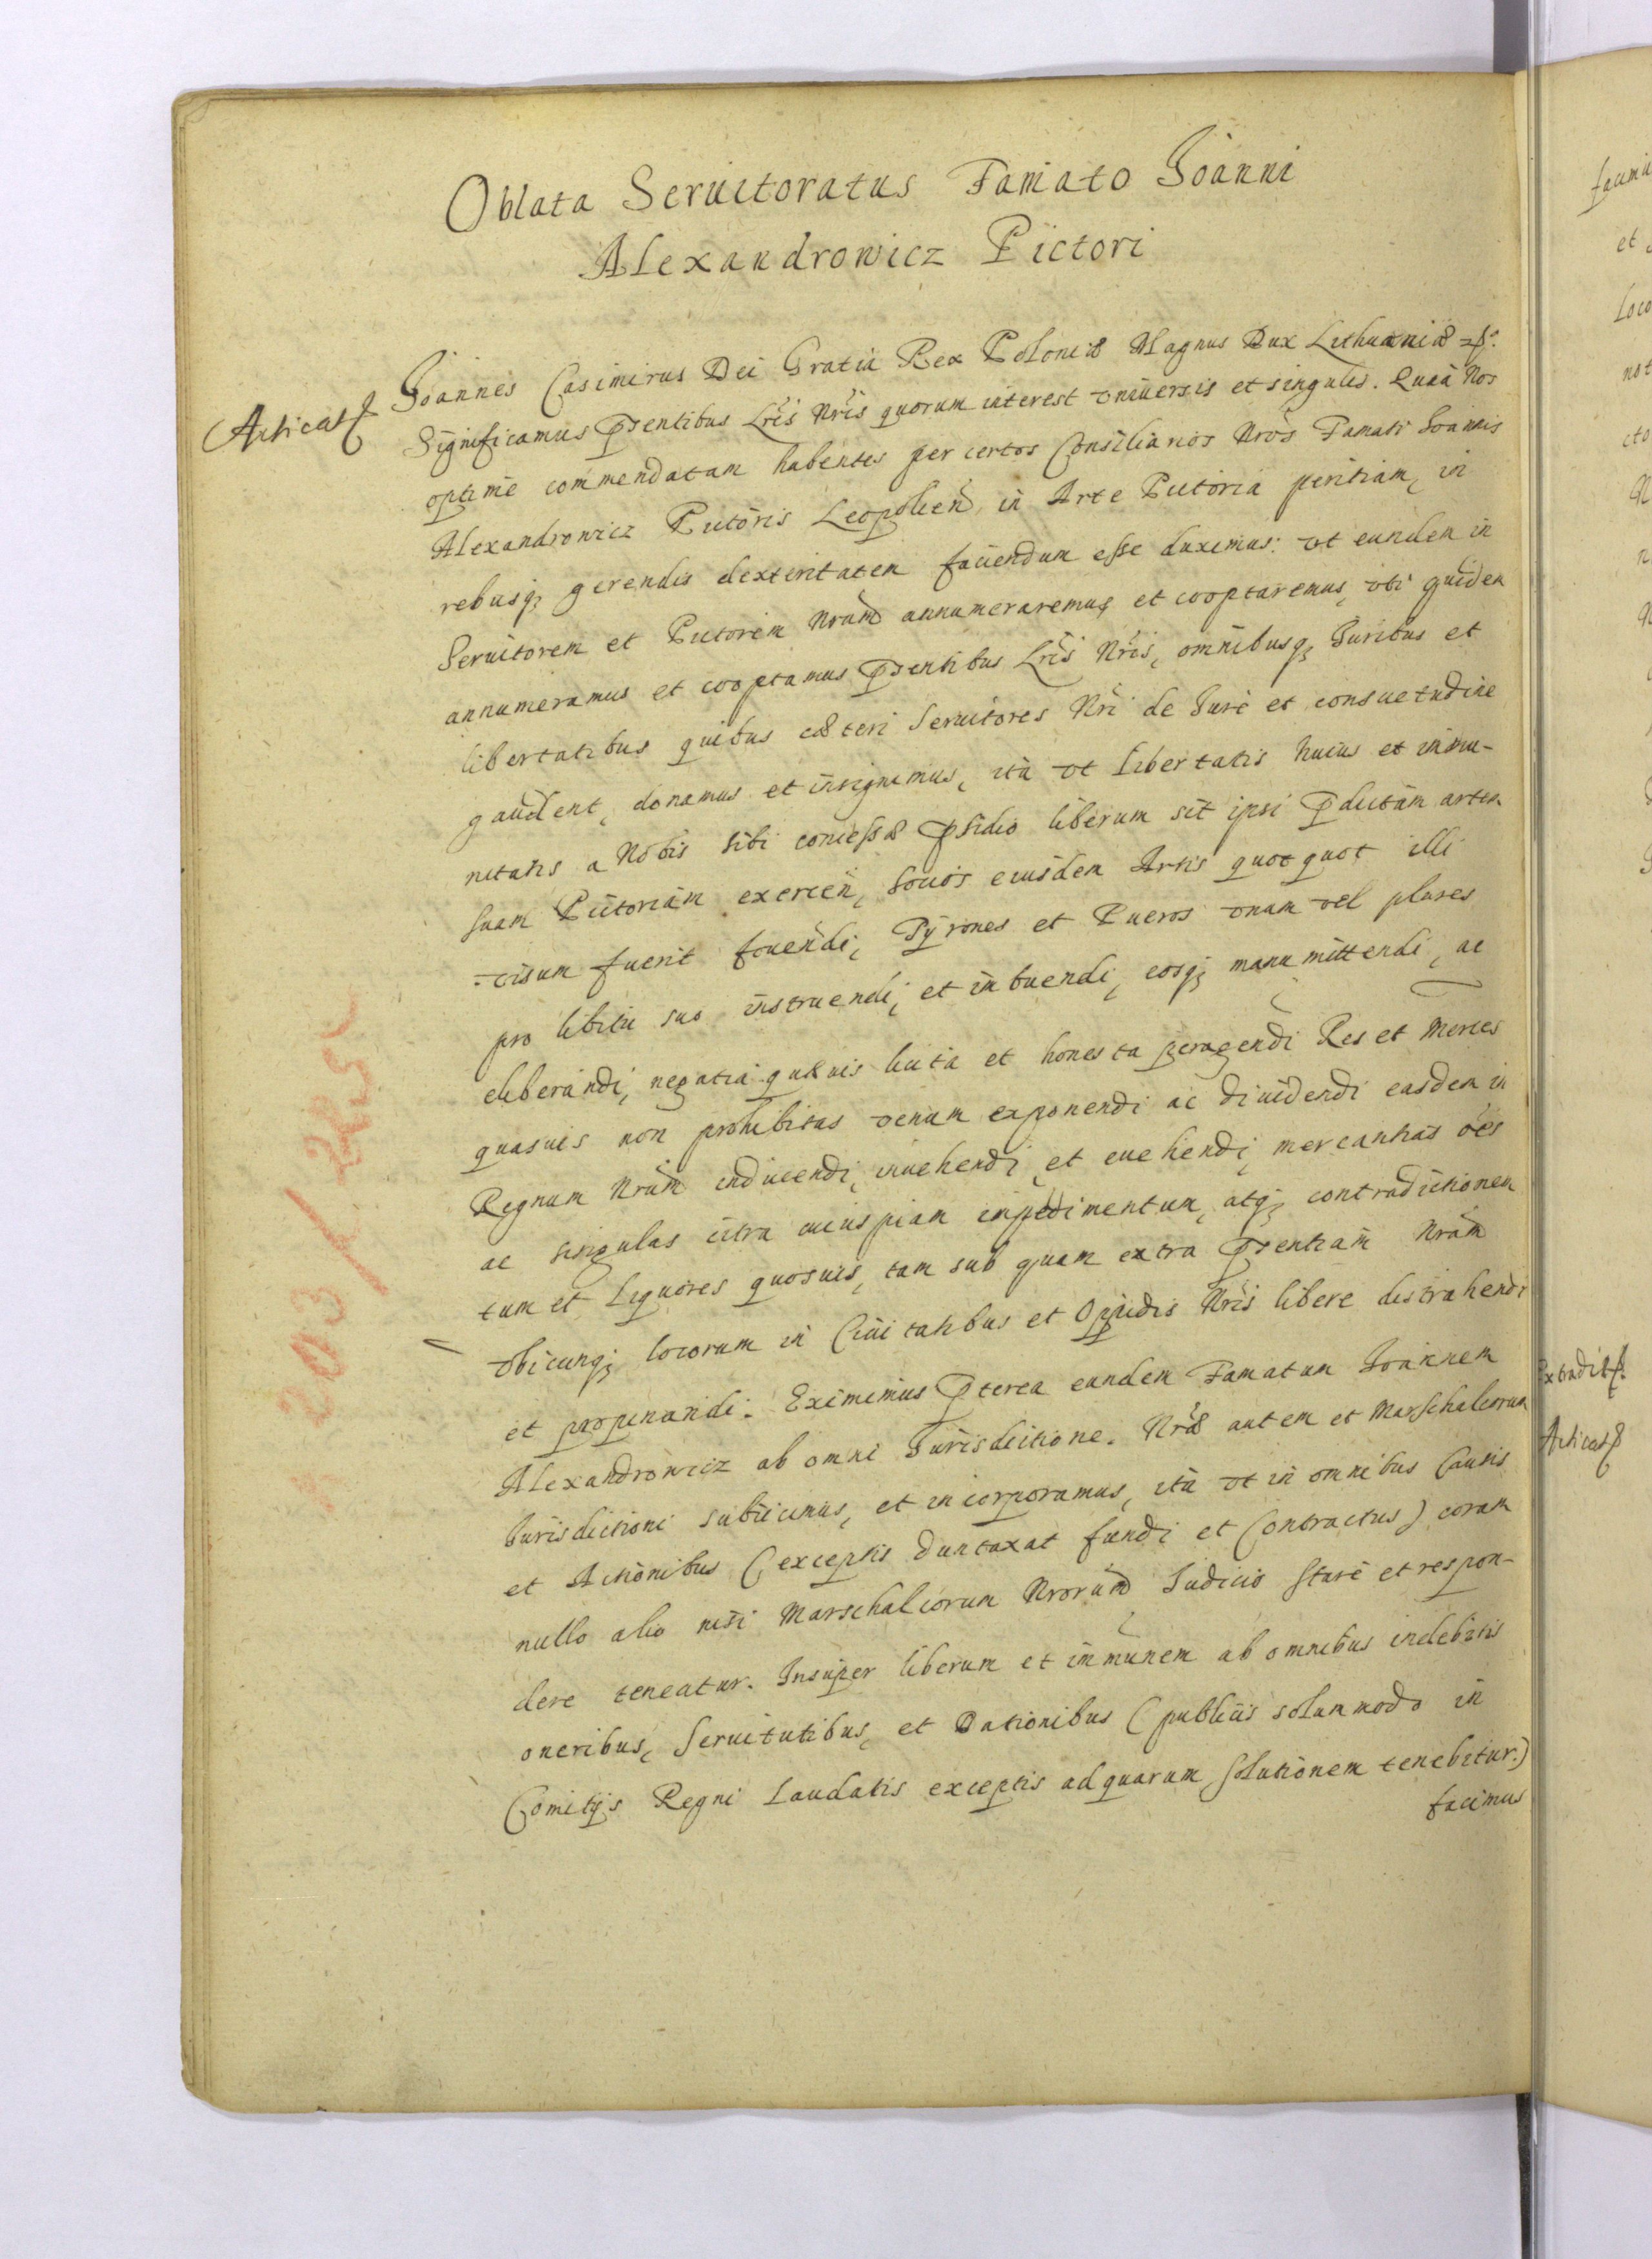 Oblata Seruitoratus Famato Joanni
Alexandrowicz Pictori
Acticat
Joannes Casimirus Dei Gratia Rex Poloniæ Magnus Dux Lithuaniæ etc.
Significamus Pñtentibus Lris Nris quorum interest vniuersis et singulis. Quia Nos
optime commendatam habentes per certos Consiliarios Nros Famati Joannis
Alexandrowicz Pictoris Leopolien, in Arte Pictoria peritiam, in
rebusq; gerendis dexteritatem faciendum esse duximus: vt eundem in
Seruitorem et Pictorem Nrum annumeraremus et cooptaremus, vti quidem
annumeramus et cooptamus Psentibus Lris Nris, omnibusq; Juribus et
libertatibus quibus cæteri Seruitores Nri de Jure et consuetudine
gaudent, donamus et insignimus, ita vt libertatis huius et immu-
nitatis a Nobis sibi concessæ psidio liberum sit ipsi Pdictam artem
suam Pictoriam exercen, Socios eiusdem Artis quotquot illi
visum fuerit fouendi, Tyrones et Pueros vnum vel plures
pro libitu suo instruendi, et imbuendi, eosq; manumittendi, ac
eliberandi, negotia quæuis licita et honesta peragendi Res et Merces
quasuis non prohibitas venum exponendi ac diuidendi easdem in
Regnum Nrum inducendi, inuehendi, et euehendi, mercantias oes
ac singulas citra cuiuspiam impedimentum, atq; contradictionem
tum et Liquores quosuis, tam sub quam extra Psentiam Nram
vbicunq; locorum in Ciuitatibus et Oppidis Nris libere distrahendi
et propinandi. Eximimus Pterea eundem Famatum Joannem
Alexandrowicz ab omni Jurisdictione. Nræ autem et Marschalcorum
Jurisdictioni subiicimus, et incorporamus, ita vt in omnibus Causis
et Actionibus (exceptis duntaxat fundi et Contractus) coram
nullo alio nisi Marschalcorum Nrorum Judicio stare et respon-
dere teneatur. Insuper liberum et immunem ab omnibus indebitis
oneribus, Seruitutibus, et Dationibus (publicis solummodo in
Comitijs Regni Laudatis exceptis ad quarum solutionem tenebitur.)
facimus
Extradit
Acticat